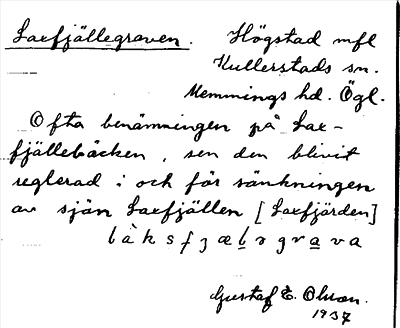 Laxfjällegraven. Högstad mfl
Kullerstads sn.
Memmings hd. Ögl.
Ofta benämningen på Lax-
fjällebäcken, sen den blivit
reglerad i och för sänkningen
av sjön Laxfjällen [Laxfjärden]
Gustaf E. Olsson.
1937